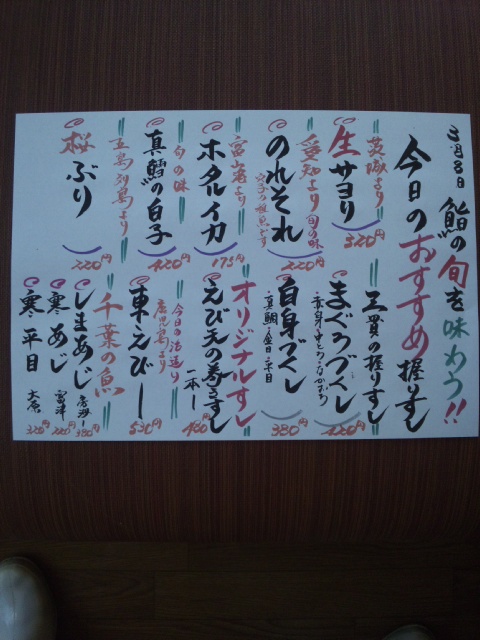 3月8日 鮨の旬を味わう!!
今日のおすすめ握りすし
茨城より
生サヨリ
320円
愛知より旬の味
のれそれ
穴子の稚魚です
220円
富山湾より
ホタルイカ
175円
旬の味
真鱈の白子
420円
五島列島より
桜ぶり
220円
三貫の握りすし
まぐろづくし
赤身・中とろ・ながおち
420円
白身づくし
真鯛・金目・平目
380円
オリジナルすし
えび天の巻きすし
一本
480円
今日の活造り
鹿児島より
車えび
530円
千葉の魚
しまあじ
380円
寒あじ
富津
220円
寒平目
大原
320円